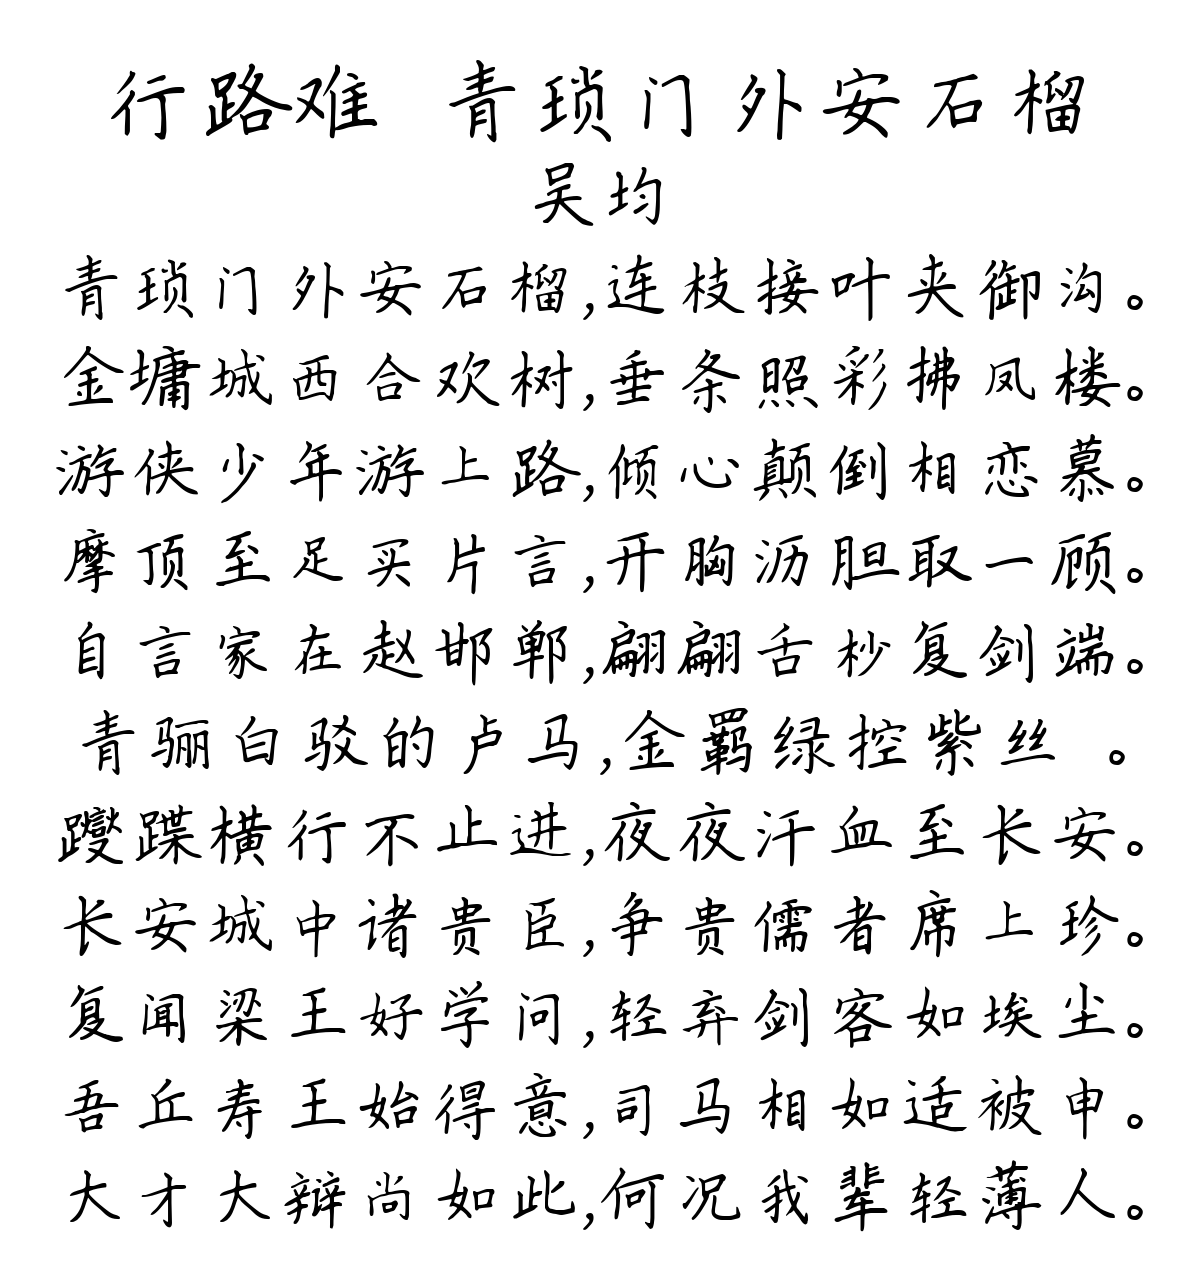 行路难 青琐门外安石榴
吴均
青琐门外安石榴,连枝接叶夹御沟。
金墉城西合欢树,垂条照彩拂凤楼。
游侠少年游上路,倾心颠倒相恋慕。
摩顶至足买片言,开胸沥胆取一顾。
自言家在赵邯郸,翩翩舌杪复剑端。
青骊白驳的卢马,金羁绿控紫丝 。
躞蹀横行不止进,夜夜汗血至长安。
长安城中诸贵臣,争贵儒者席上珍。
复闻梁王好学问,轻弃剑客如埃尘。
吾丘寿王始得意,司马相如适被申。
大才大辩尚如此,何况我辈轻薄人。